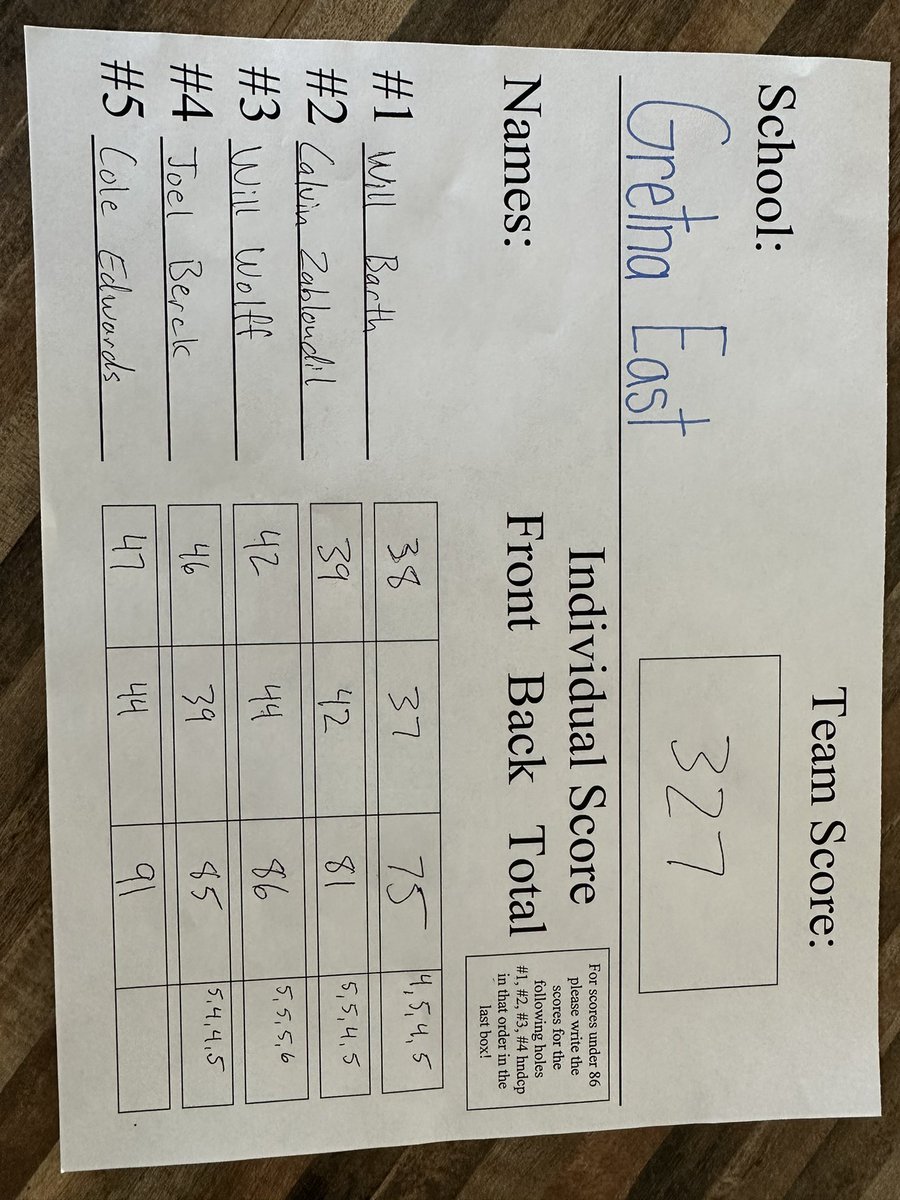 School: Team Score:
Gretna East 327
Individual Score
Names: Front Back Total
For scores under 86
please write the
scores for the
following holes
#1, #2, #3, #4 hndcp
in that order in the
last box!
#1 Will Barth 38 37 75 4,5,4,5
#2 Calvin Zabloudil 39 42 81 5,5,4,5
#3 Will Wolff 42 44 86 5,5,5,6
#4 Joel Berck 46 39 85 5,4,4,5
#5 Cole Edwards 47 44 91